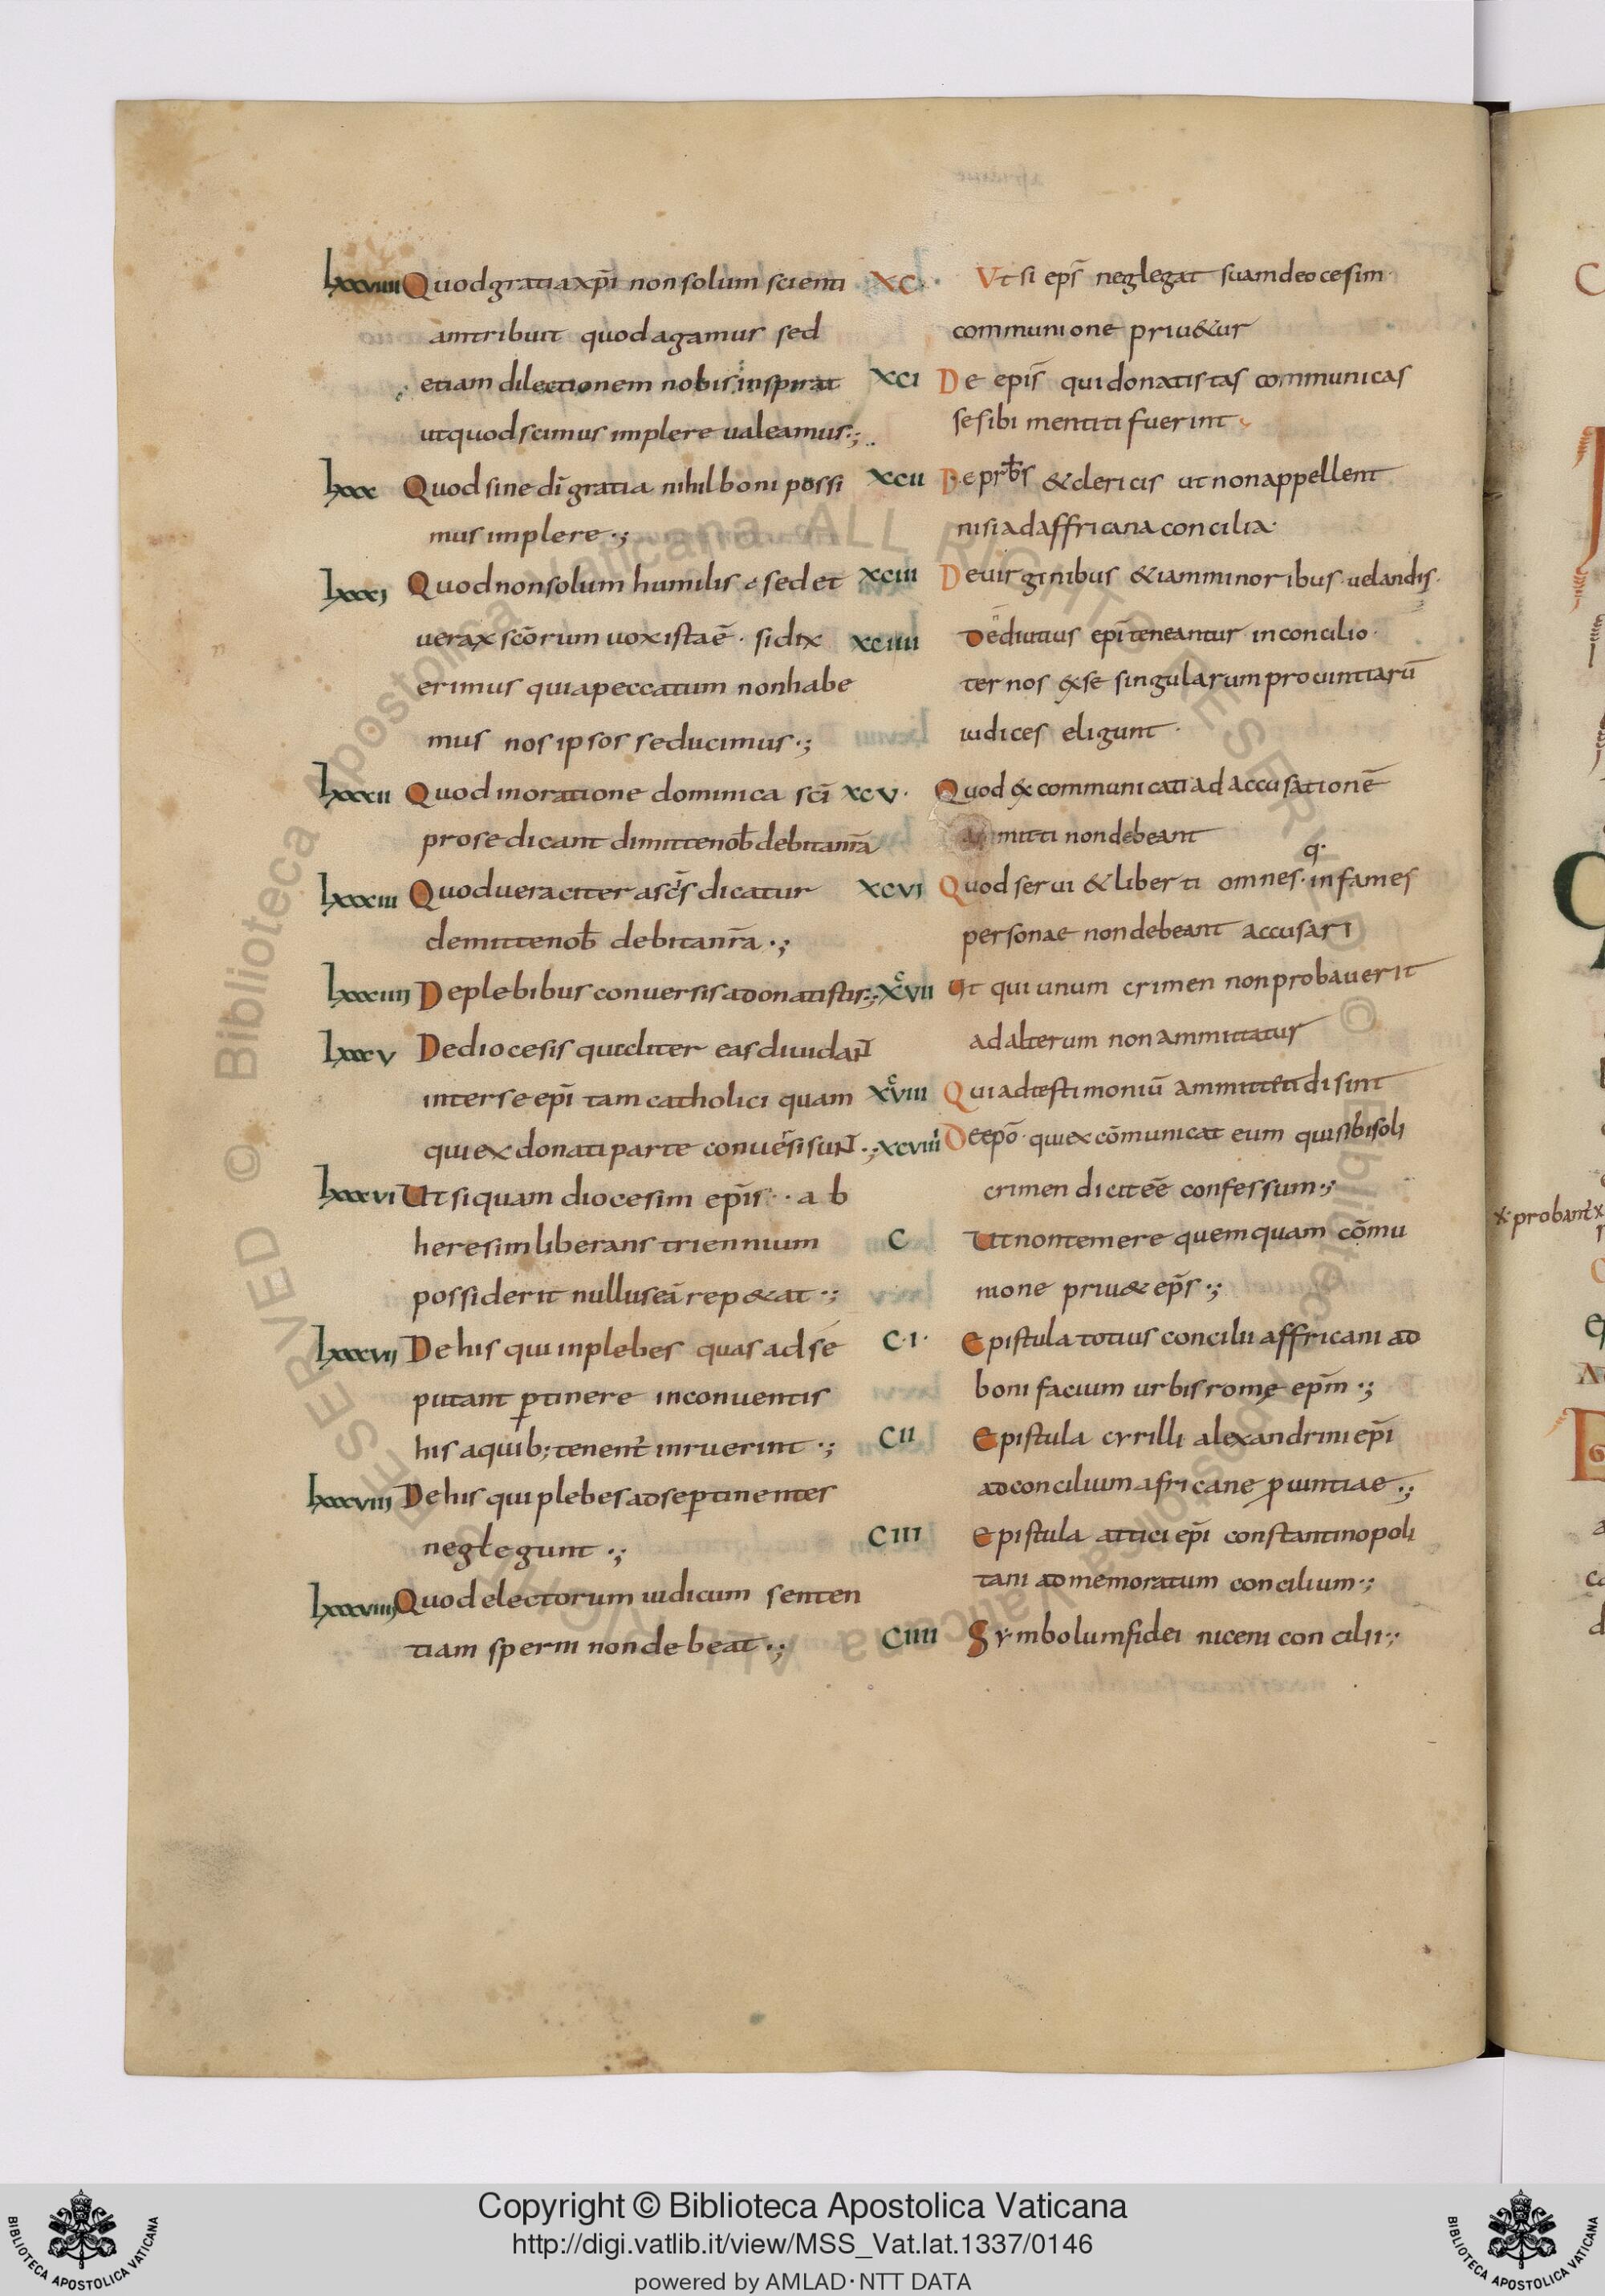 lxxviiii Quod gratia xp̄i non solum scienti
am tribuit quod agamus sed
etiam dilectionem nobis inspirat
ut quod scimus implere ualeamus·;
lxxx Quod sine dī gratia nihil boni possi
mus implere ·;
lxxxi Quod non solum humilis sed et
uerax scōrum uox ista ē · si dix
erimus quia peccatum non habe
mus nos ipsos seducimus ·;
lxxxii Quod in oratione dominica scī
pro se dicant dimitte nob̄ debita nr̄a
lxxxiii Quod ueraciter a sc̄is dicatur
demitte nob̄ debita nr̄a ·;
lxxxiiii De plebibus conuersis a donatistis·;
lxxxv De diocesis qualiter eas diuidant
inter se epī tam catholici quam
qui ex donati parte conuersi sunt ·;
lxxxvi Ut si quam diocesim epīs · · a b
heresim liberans triennium
possiderit nullus eā rep&at ·;
lxxxvii De his qui in plebes quas ad se
putant ꝑtinere inconuentis
his a quib; tenent̉ inruerint ·;
lxxxviii De his qui plebes ad se ꝑtinentes
neglegunt ·;
lxxxviiii Quod electorum iudicum senten
tiam sperni non debeat ·;
xc · Ut si ep̄s neglegat suam deocesim
communione priu&ur
xci De epīs qui donatistas communicas
se sibi mentiti fuerint
xcii De prb̄s & clericis ut non appellent
nisi ad affricana concilia·
xciii De uirginibus &iam minoribus uelandis·
xciiii Ne diutius epī teneantur in concilio·
ternos ex se singularum prouintiarū
iudices eligunt ·
xcv · Quod excommunicati ad accusationē
ammitti non debeant
q·
xcvi Quod serui & liberti omnes · infames
personae non debeant accusari
xcvii Ut qui unum crimen non probauerit
ad alterum non ammittatur
xcviii Qui ad testimoniū ammittendi sint
xcviiii De epō · qui excōmunicat eum qui sibi soli
crimen dicit eē confessum·;
c Ut non temere quemquam cōmu
nione priu& ep̄s ·;
c·i· Epistula totius concilii affricani ad
bonifacium urbis romę epm̄ ·;
cii Epistula cyrilli alexandrini epī
ad concilium africane ꝓuintiae ·;
ciii Epistula attici epī constantinopoli
tani ad memoratum concilium·;
ciiii Symbolum fidei niceni concilii·;
x· probant̉
Copyright © Biblioteca Apostolica Vaticana
http://digi.vatlib.it/view/MSS_Vat.lat.1337/0146
powered by AMLAD·NTT DATA
BIBLIOTECA APOSTOLICA VATICANA
BIBLIOTECA APOSTOLICA VATICANA